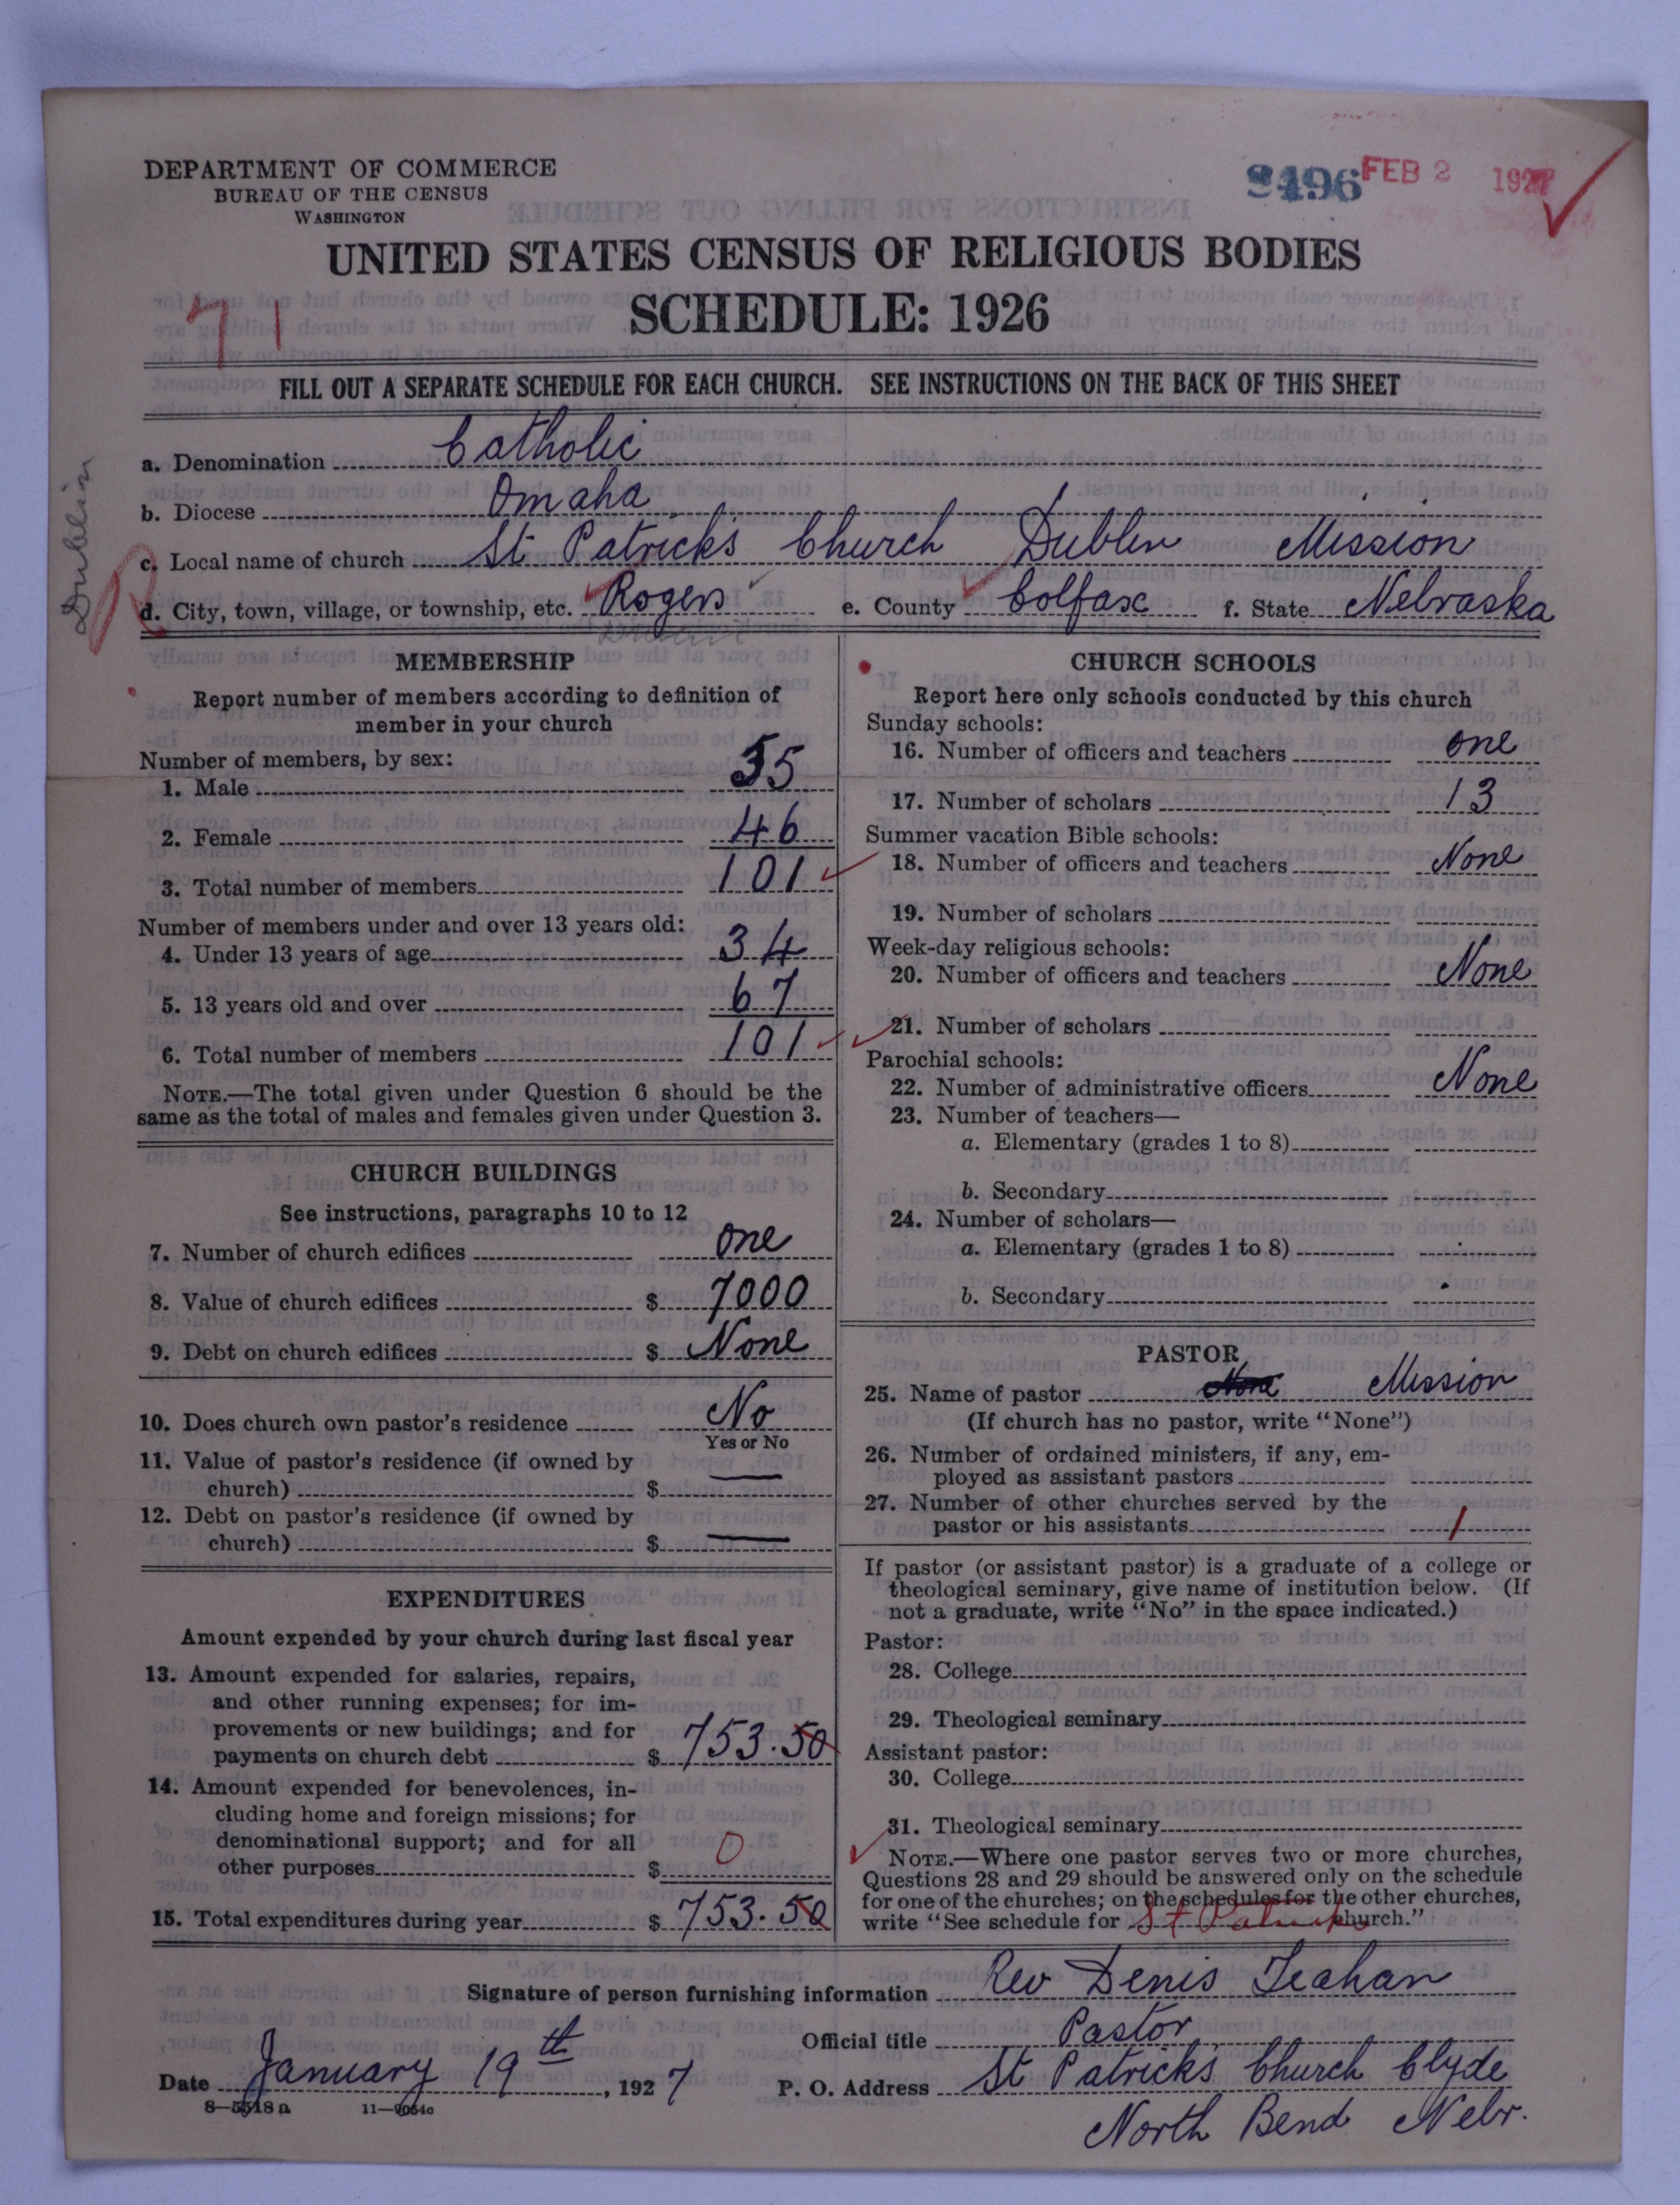 DEPARTMENT OF COMMERCE
BUREAU OF THE CENSUS
WASHINGTON
8496 FEB 2 1927
UNITED STATES CENSUS OF RELIGIOUS BODIES
SCHEDULE: 1926
71
FILL OUT A SEPARATE SCHEDULE FOR EACH CHURCH. SEE INSTRUCTIONS ON THE BACK OF THIS SHEET
Dublin
a. Denomination Catholic
b. Diocese Omaha
c. Local name of church St Patrick's Church Dublin Mission
d. City, town, village, or township, etc. Rogers e. County Colfax f. State Nebraska
MEMBERSHIP
Report number of members according to definition of
member in your church
Number of members, by sex:
1. Male 55
2. Female 46
3. Total number of members 101
Number of members under and over 13 years old:
4. Under 13 years of age 34
5. 13 years old and over 67
6. Total number of members 101
NOTE.—The total given under Question 6 should be the
same as the total of males and females given under Question 3.
CHURCH BUILDINGS
See instructions, paragraphs 10 to 12
7. Number of church edifices one
8. Value of church edifices $ 7000
9. Debt on church edifices $ None
10. Does church own pastor's residence No
Yes or No
11. Value of pastor's residence (if owned by
church) $ —
12. Debt on pastor's residence (if owned by
church) $ —
EXPENDITURES
Amount expended by your church during last fiscal year
13. Amount expended for salaries, repairs,
and other running expenses; for im-
provements or new buildings; and for
payments on church debt $ 753.50
14. Amount expended for benevolences, in-
cluding home and foreign missions; for
denominational support; and for all
other purposes $ 0
15. Total expenditures during year $ 753.50
CHURCH SCHOOLS
Report here only schools conducted by this church
Sunday schools:
16. Number of officers and teachers one
17. Number of scholars 13
Summer vacation Bible schools:
18. Number of officers and teachers None
19. Number of scholars
Week-day religious schools:
20. Number of officers and teachers None
21. Number of scholars
Parochial schools:
22. Number of administrative officers None
23. Number of teachers—
a. Elementary (grades 1 to 8)
b. Secondary
24. Number of scholars—
a. Elementary (grades 1 to 8)
b. Secondary
PASTOR
25. Name of pastor None Mission
(If church has no pastor, write "None")
26. Number of ordained ministers, if any, em-
ployed as assistant pastors
27. Number of other churches served by the
pastor or his assistants 1
If pastor (or assistant pastor) is a graduate of a college or
theological seminary, give name of institution below. (If
not a graduate, write "No" in the space indicated.)
Pastor:
28. College
29. Theological seminary
Assistant pastor:
30. College
31. Theological seminary
NOTE.—Where one pastor serves two or more churches,
Questions 28 and 29 should be answered only on the schedule
for one of the churches; on the schedules for the other churches,
write "See schedule for St Patricks church."
Signature of person furnishing information Rev Denis Teahan
Official title Pastor
Date January 19th, 1927 P. O. Address St Patrick's Church Clyde
8—5518a 11—9054c
North Bend Nebr.